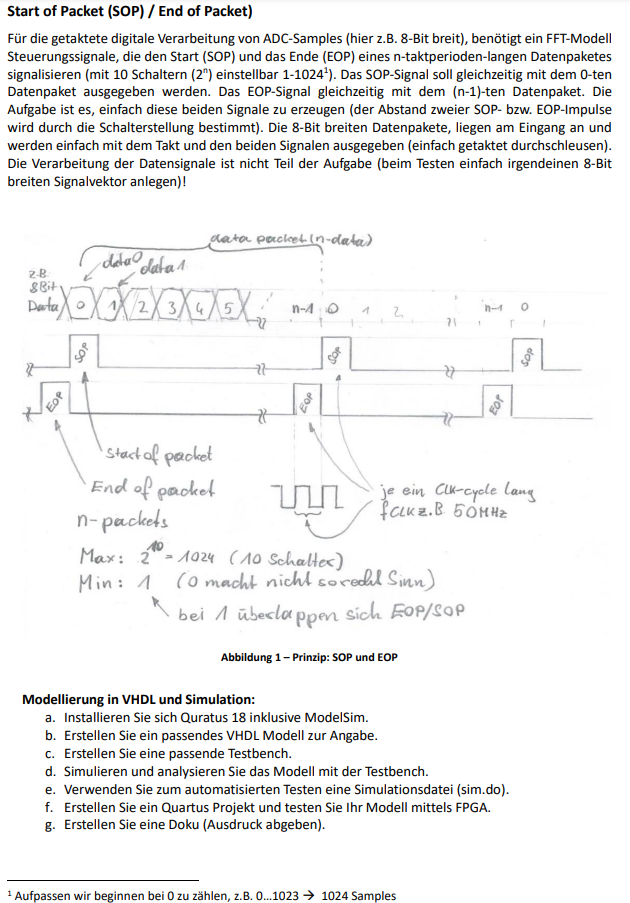 Start of Packet (SOP) / End of Packet)
Für die getaktete digitale Verarbeitung von ADC-Samples (hier z.B. 8-Bit breit), benötigt ein FFT-Modell
Steuerungssignale, die den Start (SOP) und das Ende (EOP) eines n-taktperioden-langen Datenpaketes
signalisieren (mit 10 Schaltern (2ⁿ) einstellbar 1-1024¹). Das SOP-Signal soll gleichzeitig mit dem 0-ten
Datenpaket ausgegeben werden. Das EOP-Signal gleichzeitig mit dem (n-1)-ten Datenpaket. Die
Aufgabe ist es, einfach diese beiden Signale zu erzeugen (der Abstand zweier SOP- bzw. EOP-Impulse
wird durch die Schalterstellung bestimmt). Die 8-Bit breiten Datenpakete, liegen am Eingang an und
werden einfach mit dem Takt und den beiden Signalen ausgegeben (einfach getaktet durchschleusen).
Die Verarbeitung der Datensignale ist nicht Teil der Aufgabe (beim Testen einfach irgendeinen 8-Bit
breiten Signalvektor anlegen)!
data packet (n-data)
data0 data1
z.B.
8Bit
Data 0 1 2 3 4 5 n-1 0 1 2 n-1 0
SOP SOP SOP
EOP EOP EOP
Start of packet
End of packet
je ein Clk-cycle lang
fCLK z.B 50MHz
n-packets
Max: 2¹⁰ = 1024 (10 Schalter)
Min: 1 (0 macht nicht so recht Sinn)
bei 1 überlappen sich EOP/SOP
Abbildung 1 – Prinzip: SOP und EOP
Modellierung in VHDL und Simulation:
a. Installieren Sie sich Quratus 18 inklusive ModelSim.
b. Erstellen Sie ein passendes VHDL Modell zur Angabe.
c. Erstellen Sie eine passende Testbench.
d. Simulieren und analysieren Sie das Modell mit der Testbench.
e. Verwenden Sie zum automatisierten Testen eine Simulationsdatei (sim.do).
f. Erstellen Sie ein Quartus Projekt und testen Sie Ihr Modell mittels FPGA.
g. Erstellen Sie eine Doku (Ausdruck abgeben).
¹ Aufpassen wir beginnen bei 0 zu zählen, z.B. 0...1023 → 1024 Samples